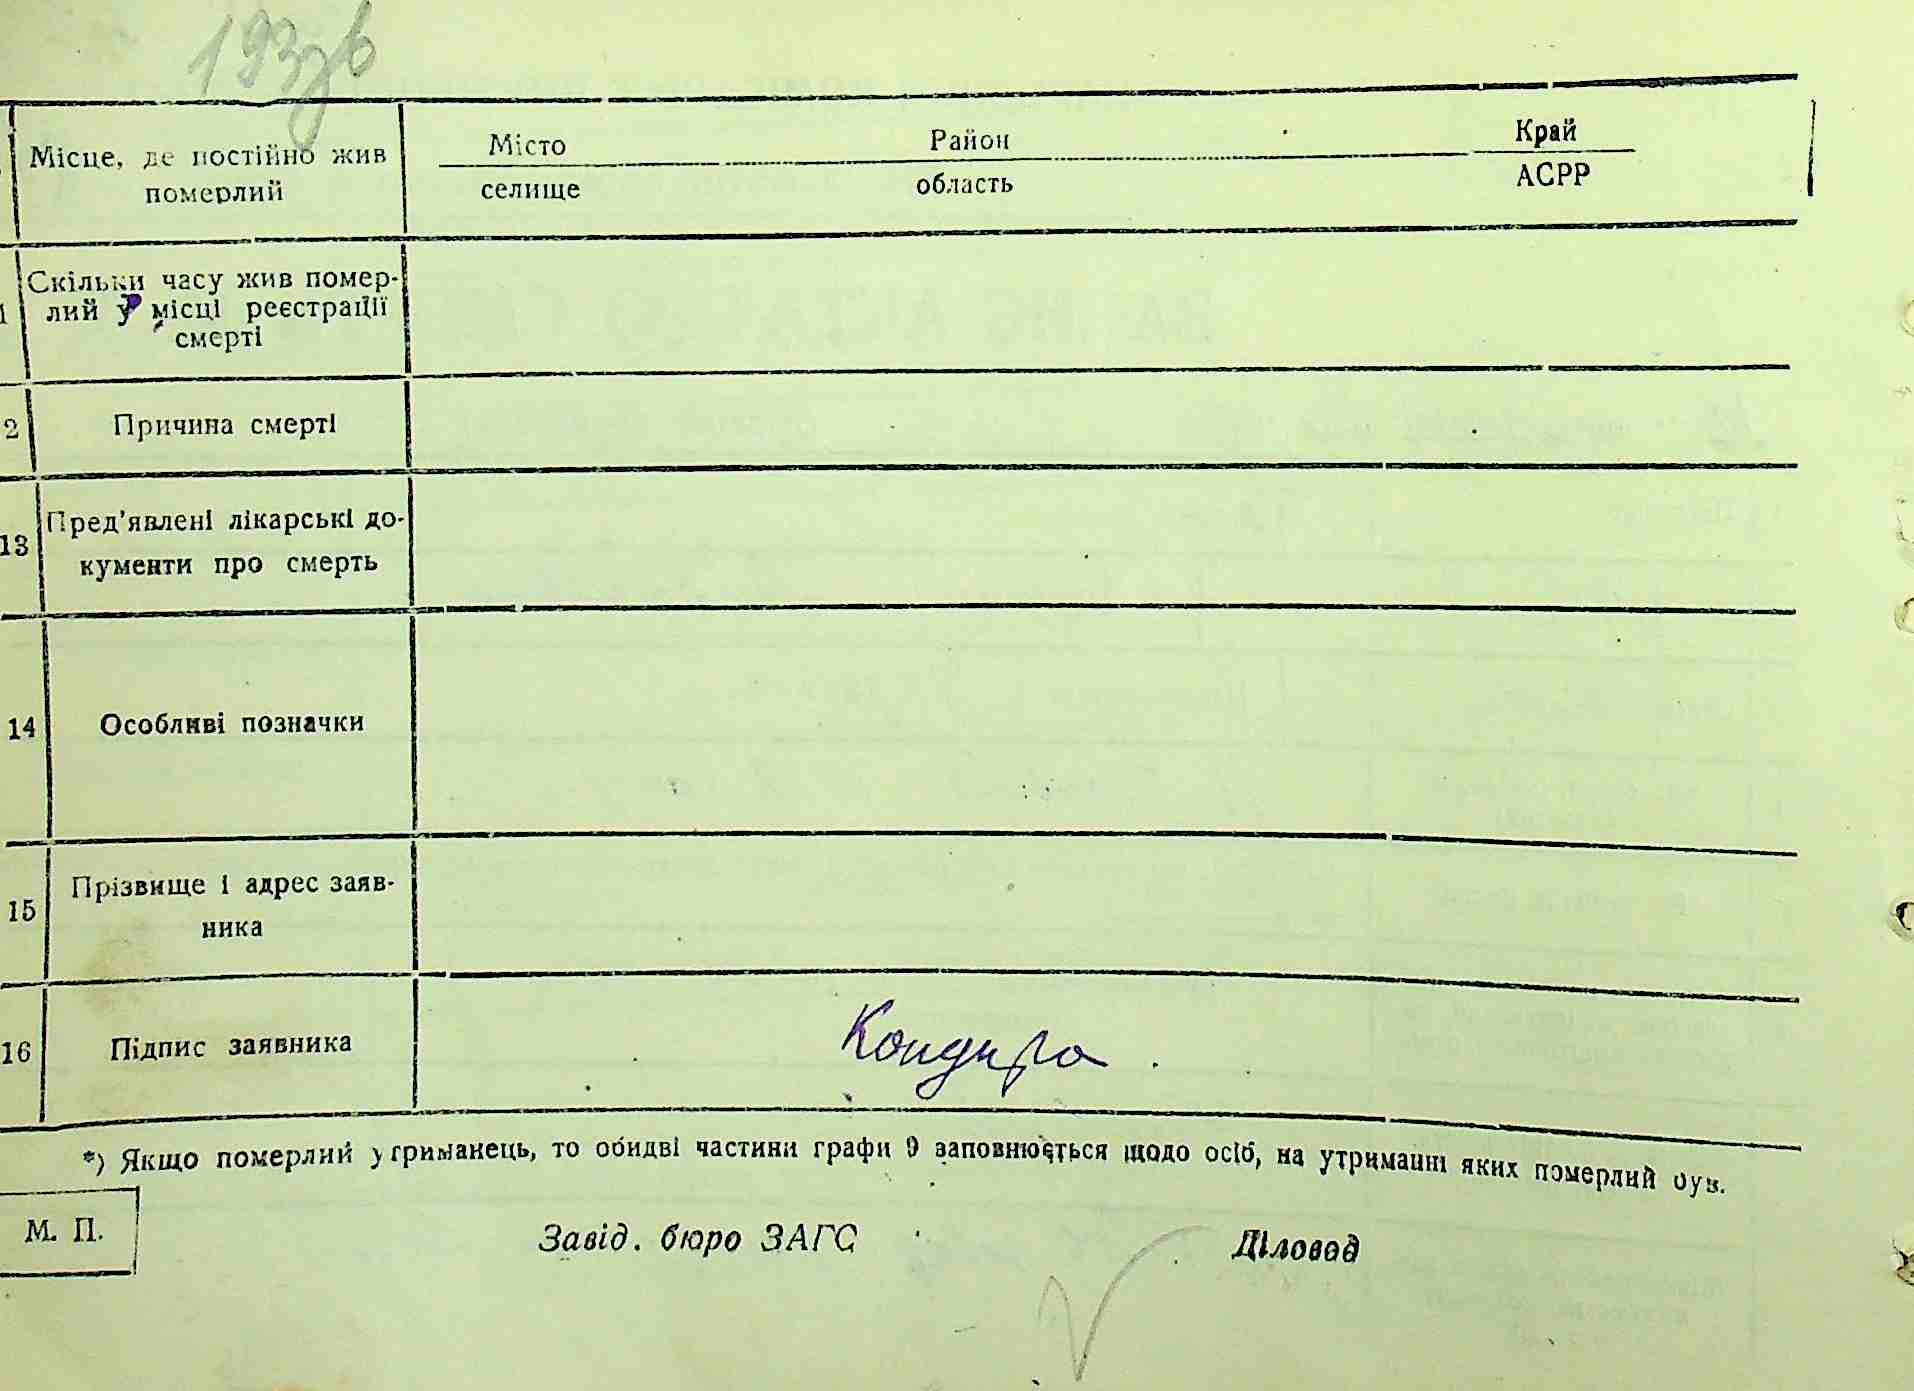 Місце, де постійно жив
померлий
Місто Район Край
селище область АСРР
1 Скільки часу жив помер-
лий у місці реєстрації
смерті
2 Причина смерті
13 Пред'явлені лікарські до-
кументи про смерть
14 Особливі позначки
15 Прізвище і адрес заяв-
ника
16 Підпис заявника
*) Якщо померлий утриманець, то обидві частини графи 9 заповнюється щодо осіб, на утриманні яких померлий був.
М. П. Завід. бюро ЗАГС Діловод